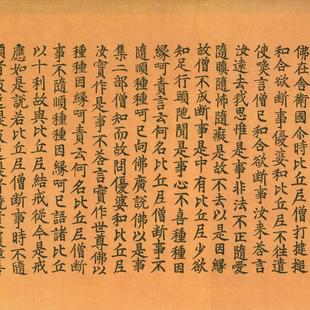 佛在舍衛國尒時比丘尼僧打揵搥
和合欲斷事優婆和比丘尼不往遣
使喚言僧已和合欲斷事汝來荅言
汝遠去我思惟是事非法不正隨愛
隨瞋隨怖隨癡是故不去以是因緣
故僧不成斷事是中有比丘尼少欲
知足行頭陁聞是事心不喜種種因
緣呵責言云何名比丘尼僧斷事不
隨順種種呵已向佛廣說佛以是事
集二部僧知而故問優婆和比丘尼
汝實作是事不荅言實作世尊佛以
種種因緣呵責云何名比丘尼僧斷
事不隨順種種因緣呵已語諸比丘
以十利故與比丘尼結戒從今是戒
應如是說若比丘尼僧斷事時不隨